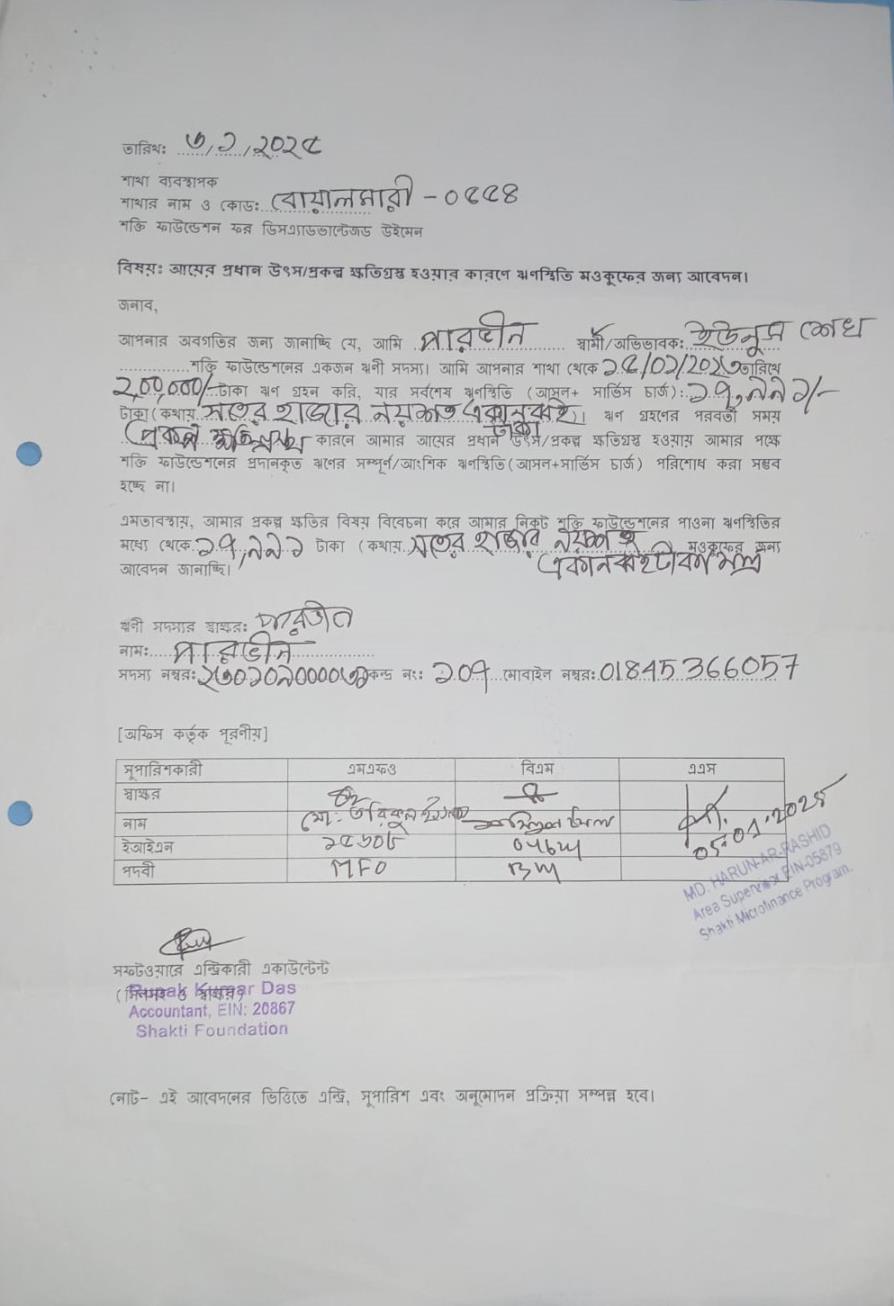 তারিখ: ৩/১/২০২৫
শাখা ব্যবস্থাপক
শাখার নাম ও কোড: বোয়ালমারী - ০৫৫৪
শক্তি ফাউন্ডেশন ফর ডিসএ্যাডভান্টেজড উইমেন
বিষয়: আয়ের প্রধান উৎস/প্রকল্প ক্ষতিগ্রস্থ হওয়ার কারণে ঋণস্থিতি মওকুফের জন্য আবেদন।
জনাব,
আপনার অবগতির জন্য জানাচ্ছি যে, আমি পারভীন স্বামী/অভিভাবক: ইউনুস শেখ
শক্তি ফাউন্ডেশনের একজন ঋনী সদস্য। আমি আপনার শাখা থেকে ১৫/০১/২০২৩ তারিখে
২,০০,০০০/- টাকা ঋণ গ্রহন করি, যার সর্বশেষ ঋণস্থিতি (আসল+ সার্ভিস চার্জ): ১৭,৯৯১/-
টাকা (কথায় সতের হাজার নয়শত একানব্বই টাকা)। ঋণ গ্রহণের পরবর্তী সময়
প্রকল্প ক্ষতিগ্রস্থ কারনে আমার আয়ের প্রধান উৎস/প্রকল্প ক্ষতিগ্রস্থ হওয়ায় আমার পক্ষে
শক্তি ফাউন্ডেশনের প্রদানকৃত ঋণের সম্পূর্ণ/আংশিক ঋণস্থিতি(আসল+সার্ভিস চার্জ) পরিশোধ করা সম্ভব
হচ্ছে না।
এমতাবস্থায়, আমার প্রকল্প ক্ষতির বিষয় বিবেচনা করে আমার নিকট শক্তি ফাউন্ডেশনের পাওনা ঋণস্থিতির
মধ্যে থেকে ১৭,৯৯১ টাকা (কথায় সতের হাজার নয়শত একানব্বই টাকা মাত্র মওকুফের জন্য
আবেদন জানাচ্ছি।
ঋনী সদস্যর স্বাক্ষর: পারভীন
নাম: পারভীন
সদস্য নম্বর: কেন্দ্র নং: ১০৭ মোবাইল নম্বর: 01845366057
[অফিস কর্তৃক পূরনীয়]
সুপারিশকারী এমএফও বিএম এএস
স্বাক্ষর
নাম মো: তরিকুল ইসলাম
ইআইএন
পদবী MFO BM
05.01.2025
MD. HARUN-AR-RASHID
Area Supervisor EIN-05879
Shakti Microfinance Program.
সফটওয়ারে এন্ট্রিকারী একাউন্টেন্ট
Rupak Kumar Das
Accountant, EIN: 20867
Shakti Foundation
নোট- এই আবেদনের ভিত্তিতে এন্ট্রি, সুপারিশ এবং অনুমোদন প্রক্রিয়া সম্পন্ন হবে।